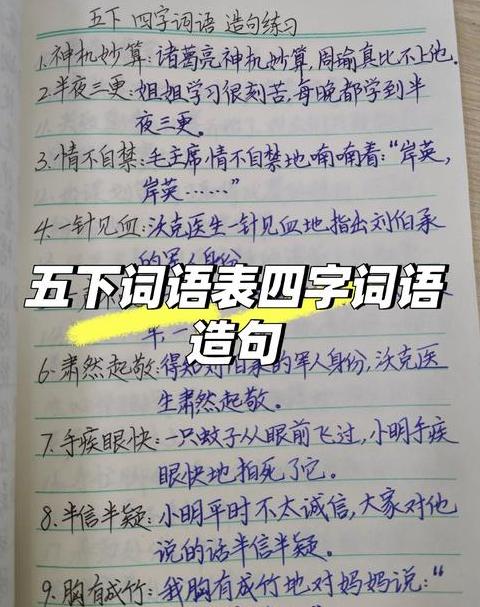 五下 四字词语 造句练习
1.神机妙算:诸葛亮神机妙算,周瑜真比不上他.
2.半夜三更:姐姐学习很刻苦,每晚都学到半
夜三更。
3.情不自禁:毛主席情不自禁地喃喃着:“岸英,
岸英……”
4.一针见血:沃克医生一针见血地指出刘伯承
的军人身份
五下词语表四字词语
造句
6.肃然起敬:得知刘伯承的军人身份,沃克医
生肃然起敬。
7.手疾眼快:一只蚊子从眼前飞过,小明手疾
眼快地拍死了它。
8.半信半疑:小明平时不太诚信,大家对他
说的话半信半疑。
9.胸有成竹:我胸有成竹地对妈妈说:“